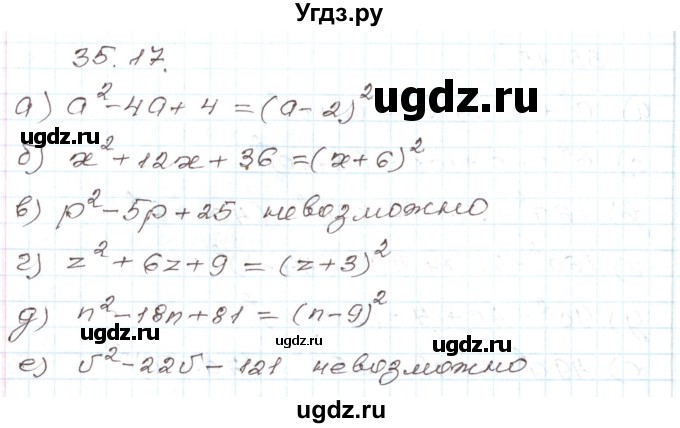 Угдз.ру
35.17.
а) a²-4a+4=(a-2)²
ugdz.ru
ugdz.ru
б) x²+12x+36=(x+6)²
в) p²-5p+25 невозможно
г) z²+6z+9=(z+3)²
ugdz.ru
д) n²-18n+81=(n-9)²
ugdz.ru
ugdz.ru
е) v²-22v-121 невозможно
ugdz.ru